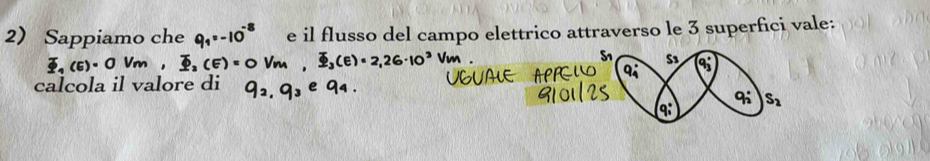 2) Sappiamo che q₁=-10⁻⁸ e il flusso del campo elettrico attraverso le 3 superfici vale:
Φ₁(E)=0 Vm , Φ₂(E)=0 Vm , Φ₃(E)=2,26·10³ Vm .
calcola il valore di q₂, q₃ e q₄.
UGUALE APPELLO
9/01/25
S₁ S₃
qᵢ qᵢ
qᵢ qᵢ S₂